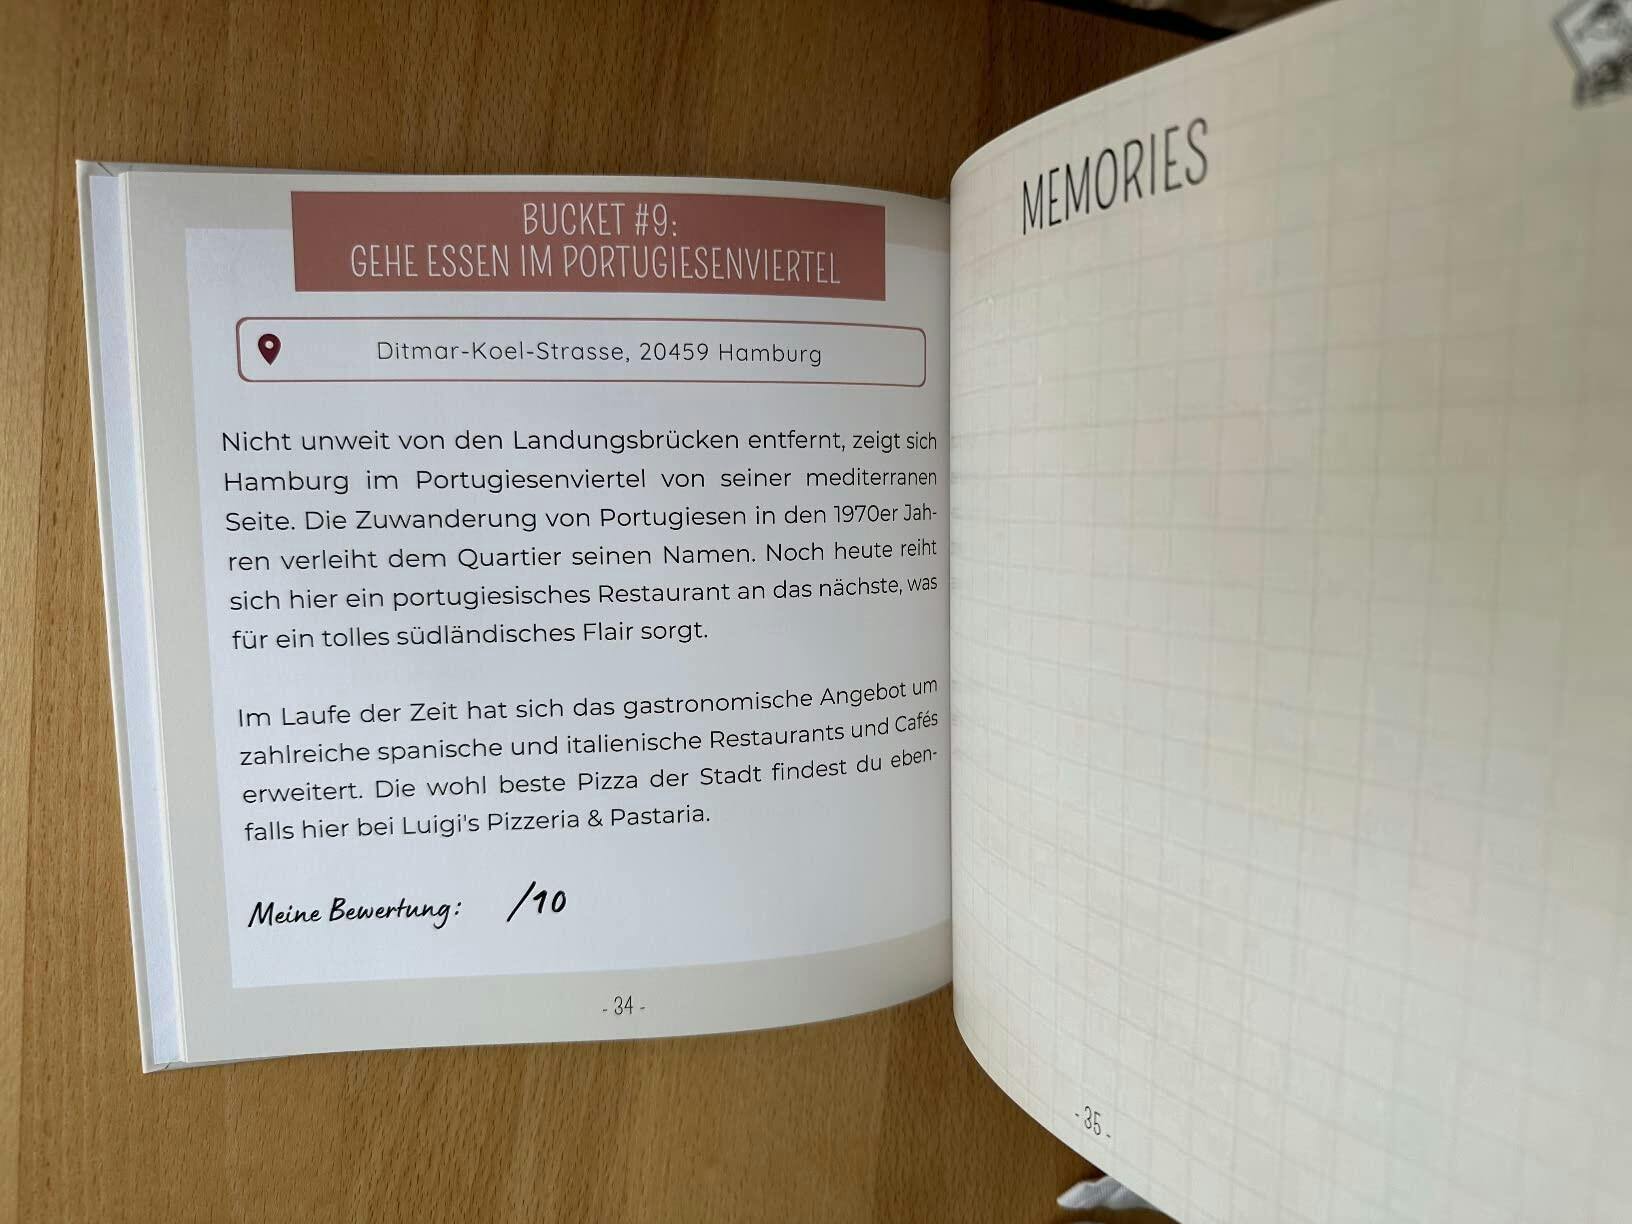 BUCKET #9:
GEHE ESSEN IM PORTUGIESENVIERTEL
Ditmar-Koel-Strasse, 20459 Hamburg
Nicht unweit von den Landungsbrücken entfernt, zeigt sich
Hamburg im Portugiesenviertel von seiner mediterranen
Seite. Die Zuwanderung von Portugiesen in den 1970er Jah-
ren verleiht dem Quartier seinen Namen. Noch heute reiht
sich hier ein portugiesisches Restaurant an das nächste, was
für ein tolles südländisches Flair sorgt.
Im Laufe der Zeit hat sich das gastronomische Angebot um
zahlreiche spanische und italienische Restaurants und Cafés
erweitert. Die wohl beste Pizza der Stadt findest du eben-
falls hier bei Luigi's Pizzeria & Pastaria.
Meine Bewertung: /10
- 34 -
MEMORIES
- 35 -